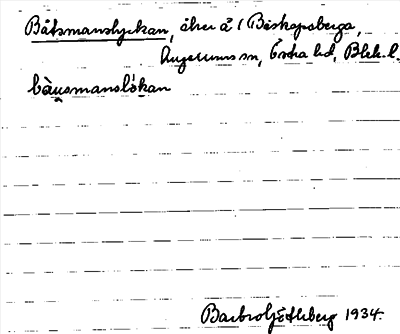 Båtsmanslyckan, åker å 1 Biskopsberga,
Augerums sn, Östra hd, Blek. l.
bàu̯smanslỳkan
Barbro Götheberg 1934.